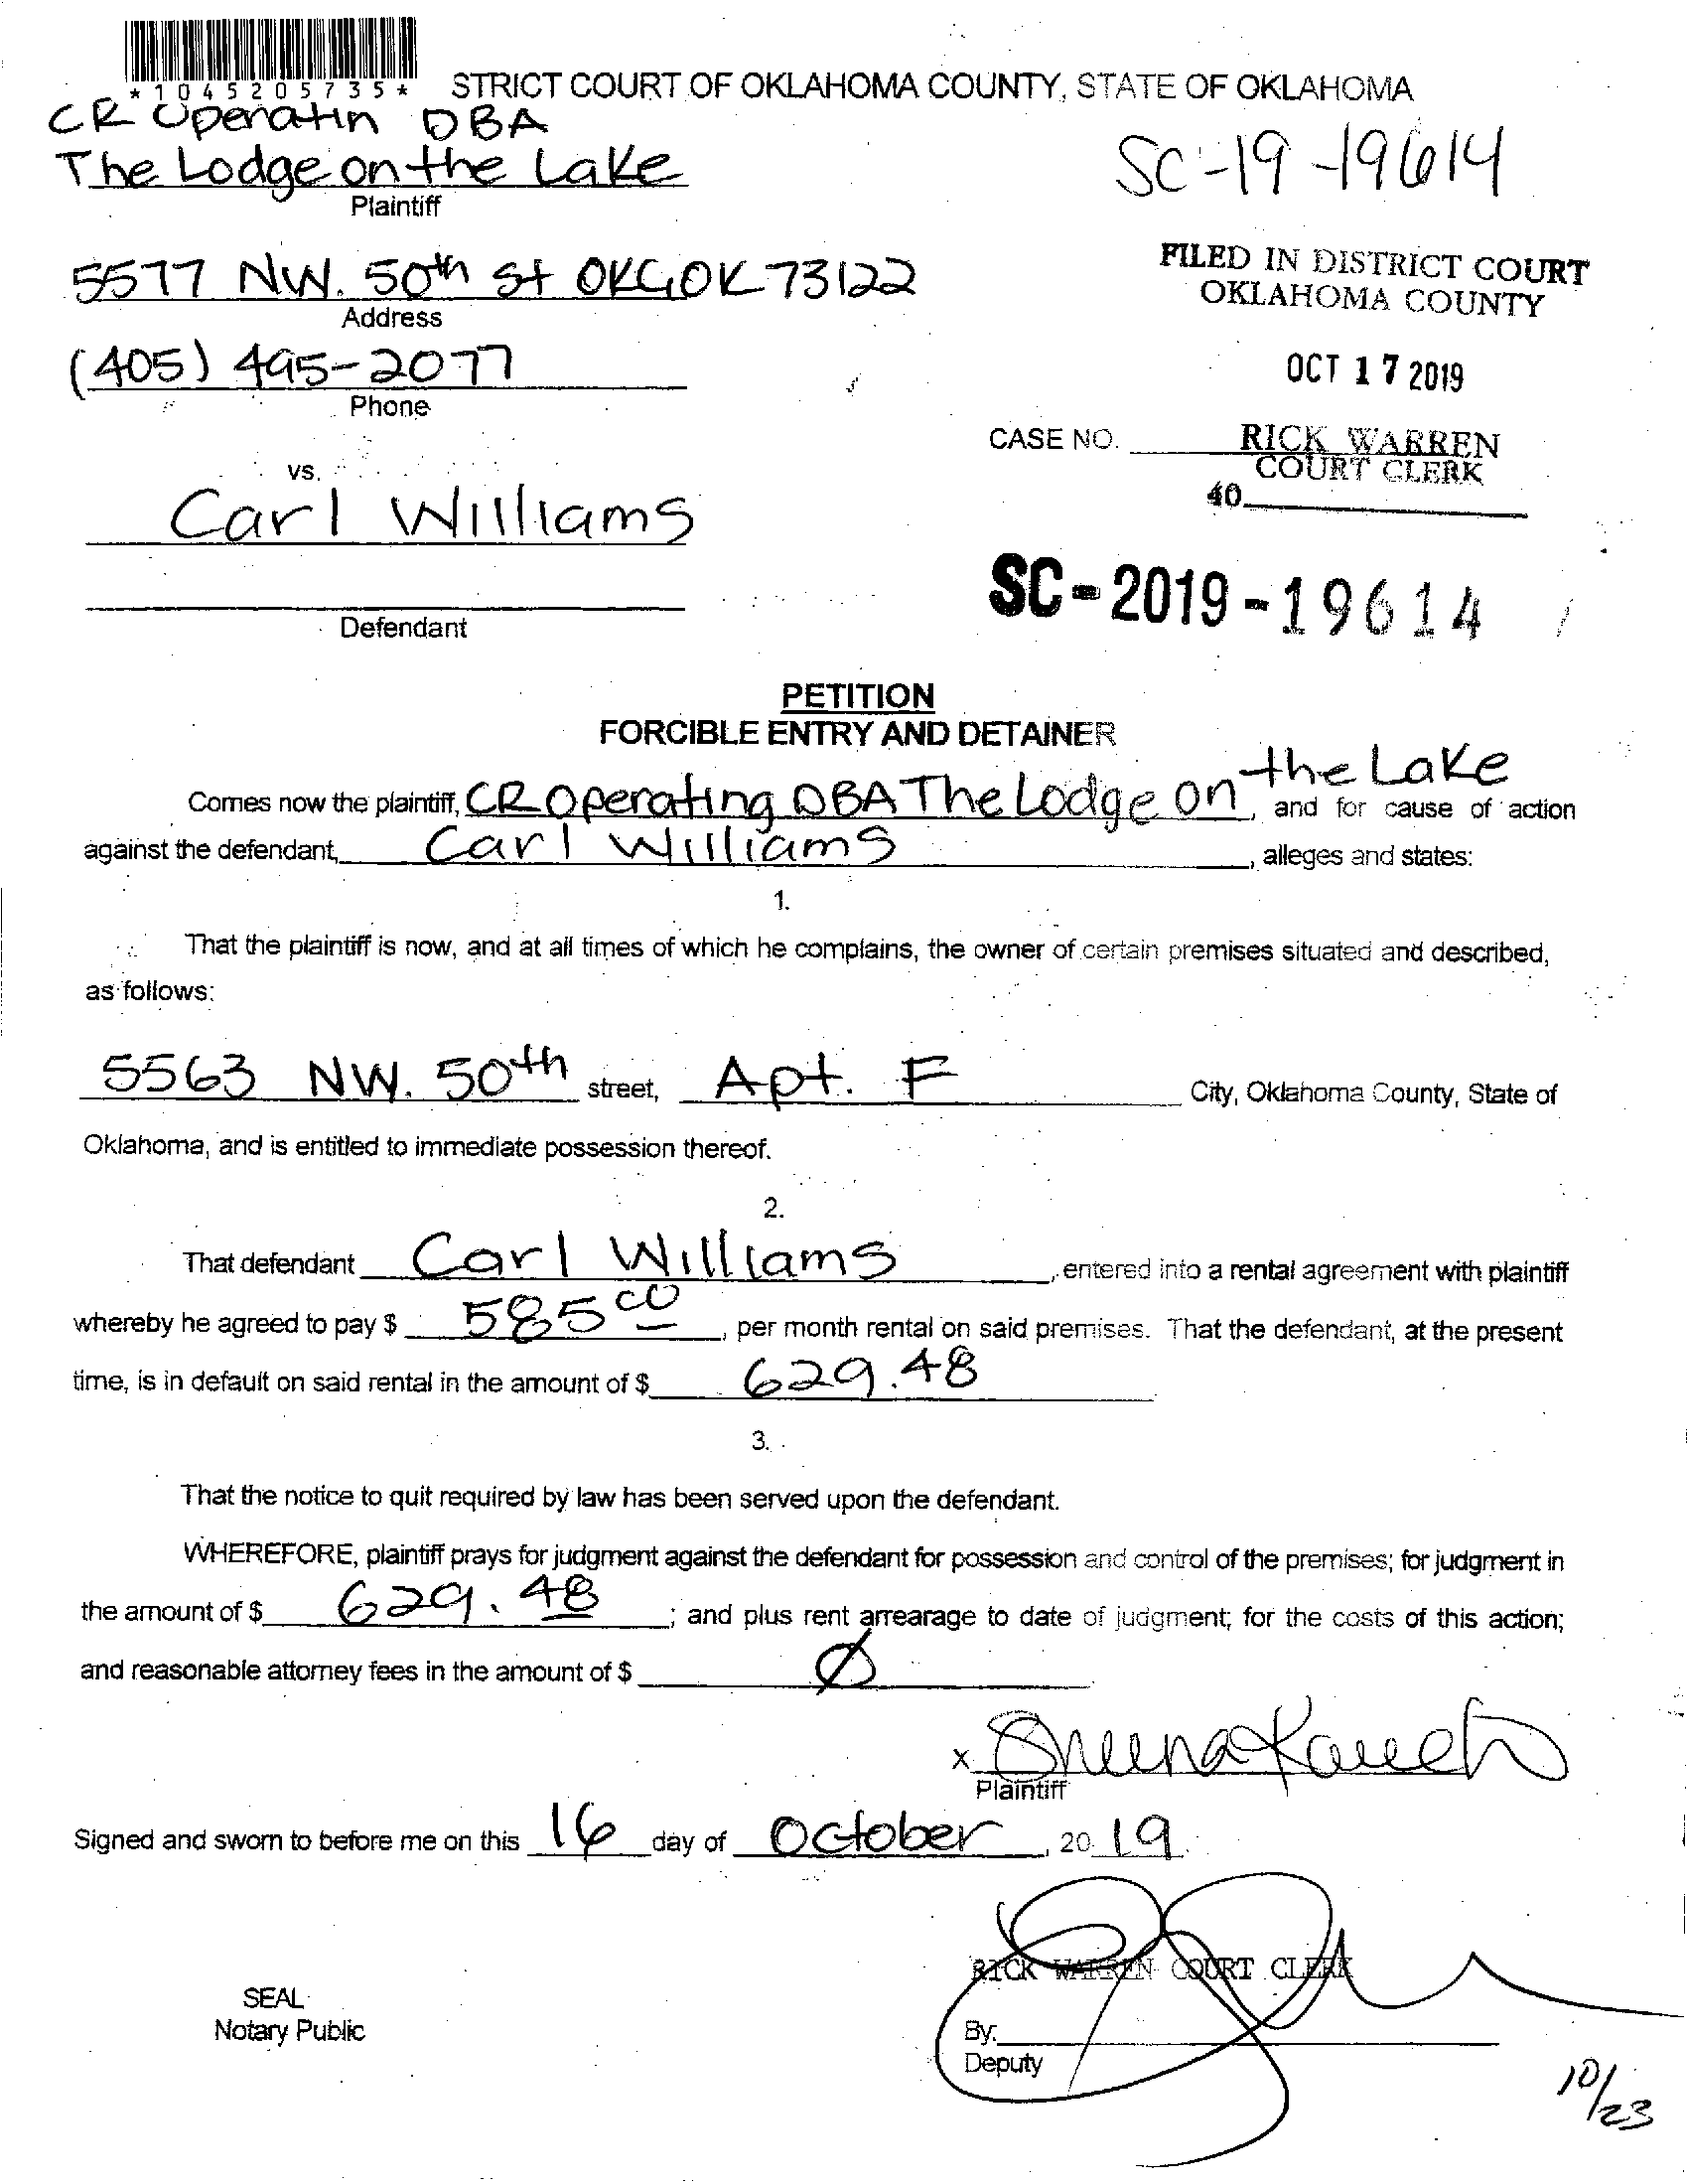 *1045205735*
STRICT COURT OF OKLAHOMA COUNTY, STATE OF OKLAHOMA
CR Operatin DBA
The Lodge on the Lake
Plaintiff
SC-19-19614
5577 NW. 50th St OKC OK 73122
Address
FILED IN DISTRICT COURT
OKLAHOMA COUNTY
(405) 495-2077
Phone
OCT 17 2019
CASE NO.
RICK WARREN
COURT CLERK
40
vs.
Carl Williams
Defendant
SC-2019-19614
PETITION
FORCIBLE ENTRY AND DETAINER
Comes now the plaintiff, CR Operating DBA The Lodge on the Lake, and for cause of action
against the defendant, Carl Williams, alleges and states:
1.
That the plaintiff is now, and at all times of which he complains, the owner of certain premises situated and described,
as follows:
5563 NW. 50th street, Apt. F City, Oklahoma County, State of
Oklahoma, and is entitled to immediate possession thereof.
2.
That defendant Carl Williams, entered into a rental agreement with plaintiff
whereby he agreed to pay $ 585 00, per month rental on said premises. That the defendant, at the present
time, is in default on said rental in the amount of $ 629.48
3.
That the notice to quit required by law has been served upon the defendant.
WHEREFORE, plaintiff prays for judgment against the defendant for possession and control of the premises; for judgment in
the amount of $ 629.48; and plus rent arrearage to date of judgment; for the costs of this action;
and reasonable attorney fees in the amount of $ Ø
x
Plaintiff
Signed and sworn to before me on this 16 day of October, 2019.
RICK WARREN COURT CLERK
SEAL
Notary Public
By:
Deputy
10/23